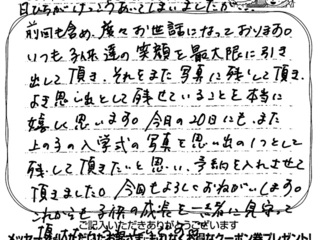 日にちがけっこうあいてしまいましたが…
前回も含め、度々お世話になっております。
いつも子供達の笑顔を最大限に引き
出して頂き、それをまた写真に残して頂き、
よき思い出として残せていることを本当に
嬉しく思います。今日の20日にも、また
上の子の入学式の写真を思い出の1つとして
残して頂きたいと思い、予約を入れさせて
頂きました。今回もよろしくおねがいします。
これからも子供の成長を一緒に見守って
ご記入いただきありがとうございます